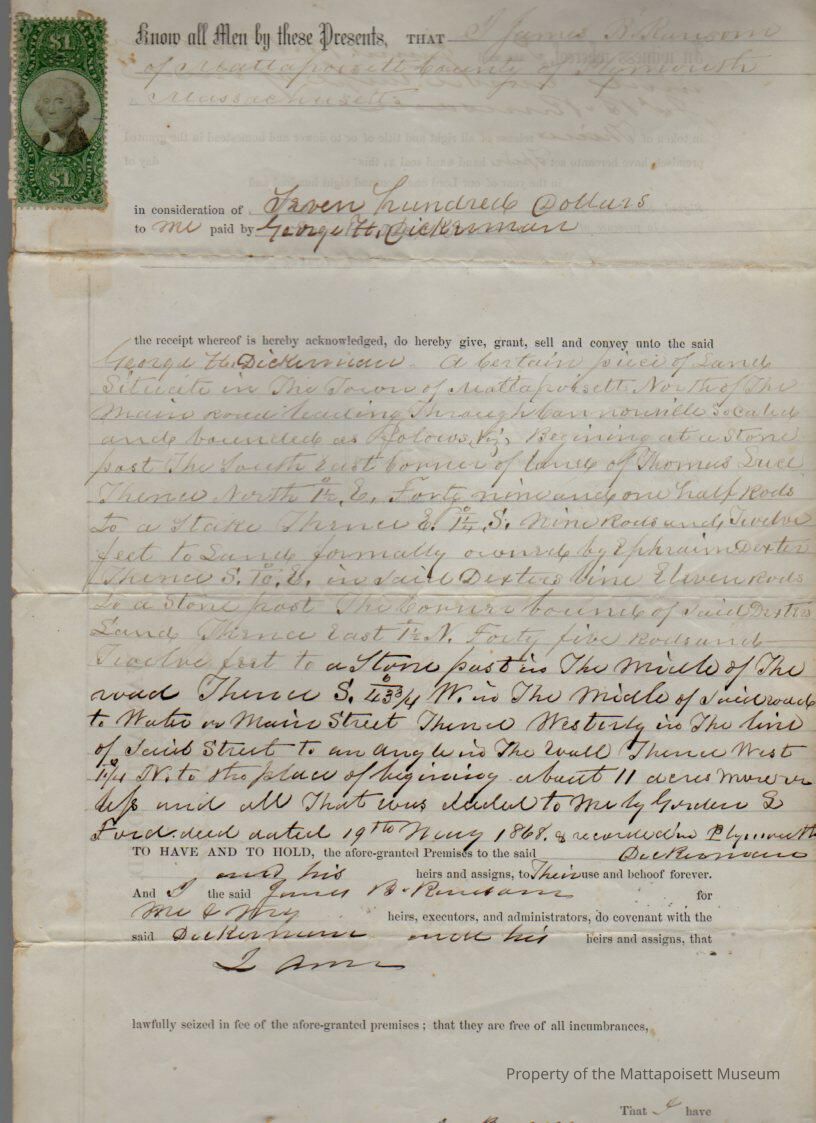 $1
$1
Know all Men by these Presents, THAT I James B. Ransom
of Mattapoisett County of Plymouth
Massachusetts
in consideration of Seven hundred Dollars
to me paid by George H. Dickerman
the receipt whereof is hereby acknowledged, do hereby give, grant, sell and convey unto the said
George H. Dickerman. A Certain piece of Land
Situate in The Town of Mattapoisett North of The
Main road leading Through Cannonville Located
and bounded as Folows, viz, Begining at a Stone
post The South East Corner of land of Thomas Luce
Thence North 1½ E. Forty nine and one half Rods
to a Stake Thence E. 1¼ S. Nine Rods and Twelve
feet to Land formally owned by Ephraim Dexter
Thence S. 10° E. in Said Dexters line Eleven Rods
to a Stone post The Corner bound of Said Dexters
Land Thence East 1½ N. Forty five Rods and
Twelve feet to a Stone post in The Middle of The
road Thence S. 43¾ W. in The Middle of Said road
to Water or Main Street Thence Westerly in The line
of Said Street to an angle in The Wall Thence West
1¼ N. to the place of begining about 11 acres more or
less and all That was deeded to Me by Gorden
Ford deed dated 19th May 1868. & recorded in Plymouth
TO HAVE AND TO HOLD, the afore-granted Premises to the said Dickerman
and his heirs and assigns, to Their use and behoof forever.
And I the said James B. Ransom for
Me & My heirs, executors, and administrators, do covenant with the
said Dickerman and his heirs and assigns, that
I am
lawfully seized in fee of the afore-granted premises; that they are free of all incumbrances,
Property of the Mattapoisett Museum
That I have